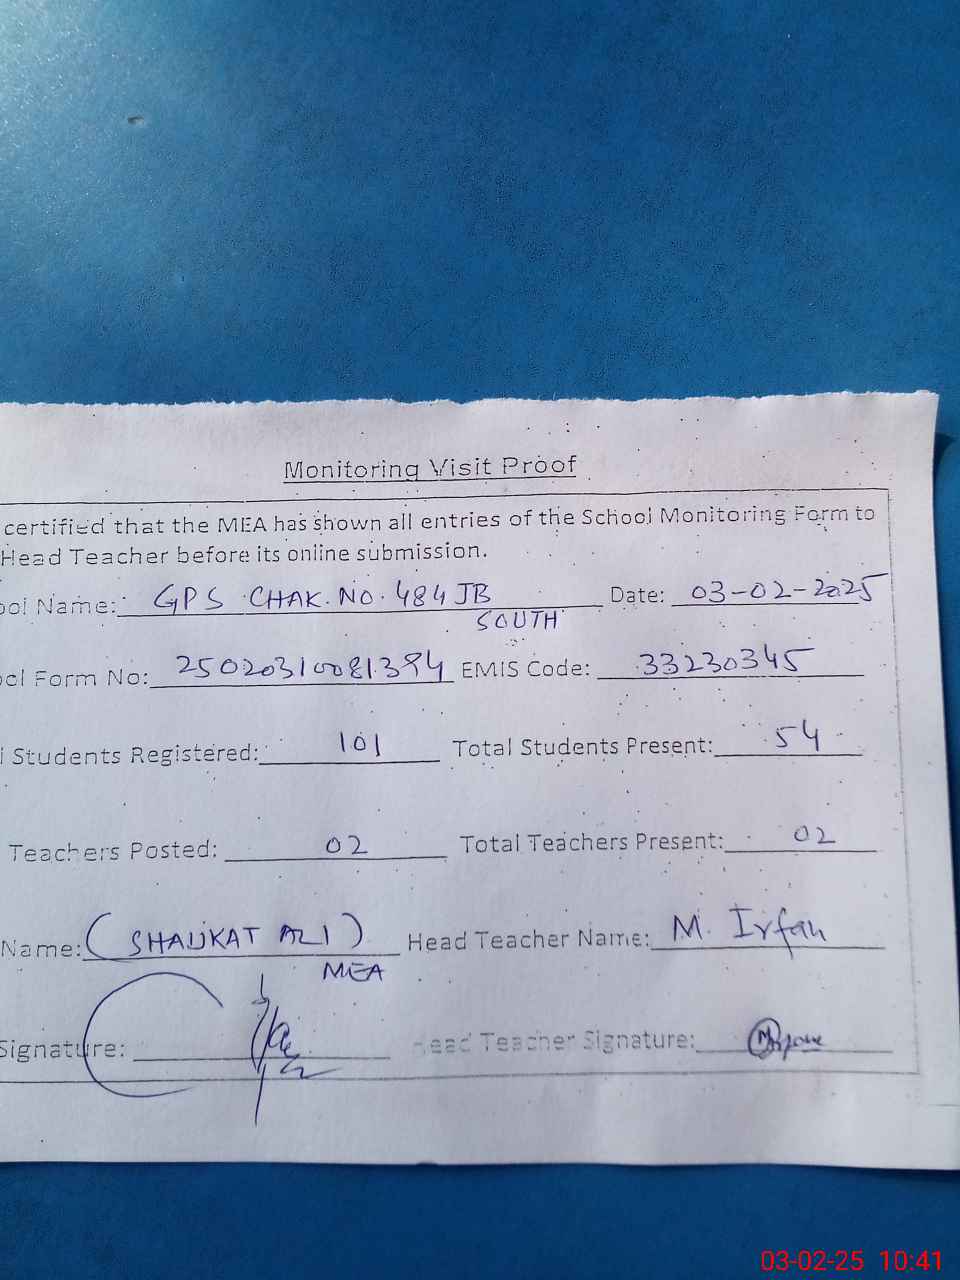 Monitoring Visit Proof
certified that the MEA has shown all entries of the School Monitoring Form to
Head Teacher before its online submission.
ool Name: GPS CHAK. NO. 484 JB Date: 03-02-2025
SOUTH
ool Form No: 25020310081394 EMIS Code: 33230345
l Students Registered: 101 Total Students Present: 54
Teachers Posted: 02 Total Teachers Present: 02
Name: (SHAUKAT ALI) Head Teacher Name: M. Irfan
MEA
Signature: Head Teacher Signature:
03-02-25 10:41